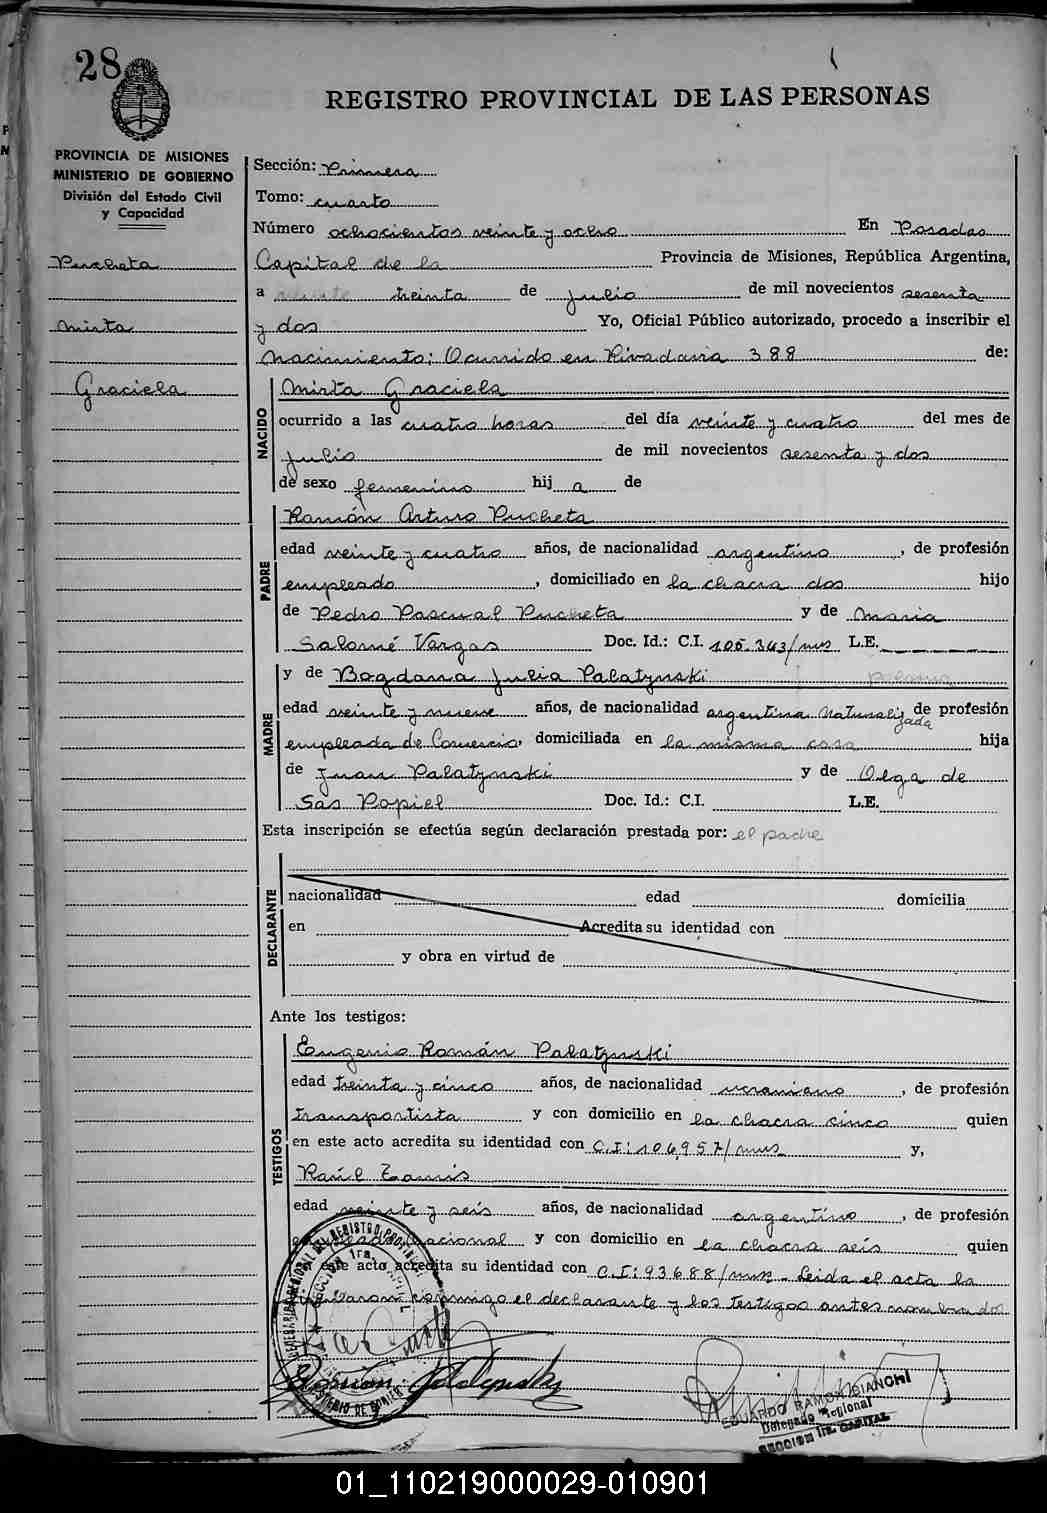 28
REGISTRO PROVINCIAL DE LAS PERSONAS
PROVINCIA DE MISIONES
MINISTERIO DE GOBIERNO
División del Estado Civil
y Capacidad
Pucheta
Mirta
Graciela
Sección: Primera
Tomo: cuarto
Número ochocientos veinte y ocho En Posadas
Capital de la Provincia de Misiones, República Argentina,
a veinte treinta de Julio de mil novecientos sesenta
y dos Yo, Oficial Público autorizado, procedo a inscribir el
Nacimiento: Ocurrido en Rivadavia 388 de:
NACIDO
Mirta Graciela
ocurrido a las cuatro horas del día veinte y cuatro del mes de
Julio de mil novecientos sesenta y dos
de sexo femenino hij a de
PADRE
Ramón Arturo Pucheta
edad veinte y cuatro años, de nacionalidad argentino, de profesión
empleado, domiciliado en la chacra dos hijo
de Pedro Pascual Pucheta y de Maria
Salomé Vargas Doc. Id.: C.I. 105.343/mns L.E.
MADRE
y de Bogdana Julia Palatynski
edad veinte y nueve años, de nacionalidad argentina Naturalizada de profesión
empleada de Comercio, domiciliada en la misma casa hija
de Juan Palatynski y de Olga de
Sas Popiel Doc. Id.: C.I. L.E.
Esta inscripción se efectúa según declaración prestada por: el padre
DECLARANTE
nacionalidad edad domicilia
en Acredita su identidad con
y obra en virtud de
Ante los testigos:
TESTIGOS
Eugenio Román Palatynski
edad treinta y cinco años, de nacionalidad ucraniano, de profesión
transportista y con domicilio en la chacra cinco quien
en este acto acredita su identidad con C.I: 106.957/mns y,
Raúl Zamis
edad veinte y seis años, de nacionalidad argentino, de profesión
empleado Nacional y con domicilio en la chacra seis quien
en este acto acredita su identidad con C.I: 93688/mns - Leida el acta la
firmaron conmigo el declarante y los testigos antes nombrados
EDUARDO RAMON BIANCHI
Delegado Regional
SECCION 1ra. CAPITAL
01_110219000029-010901